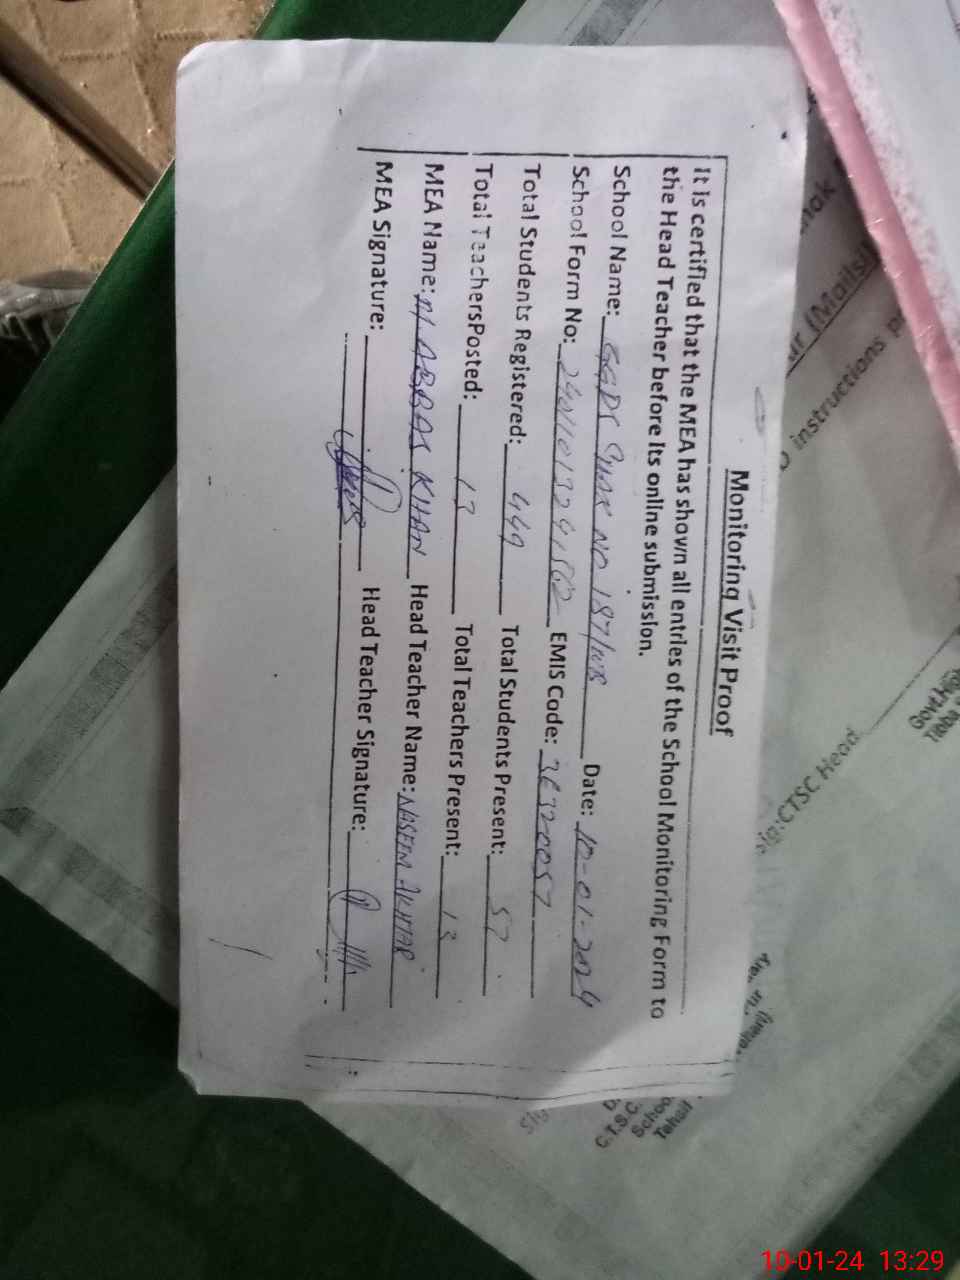 Monitoring Visit Proof
It is certified that the MEA has shown all entries of the School Monitoring Form to
the Head Teacher before its online submission.
School Name: GGPS CHAK NO 187/WB Date: 10-01-2024
School Form No: EMIS Code: 36320057
Total Students Registered: 449 Total Students Present: 57
Total TeachersPosted: 13 Total Teachers Present: 13
MEA Name: M. ABBAS KHAN Head Teacher Name: NASEEM AKHTAR
MEA Signature: Head Teacher Signature:
(Mails)
instructions
Sig:CTSC Head
Govt.High
Tibba
C.T.S.C.
School
Tehsil
10-01-24 13:29